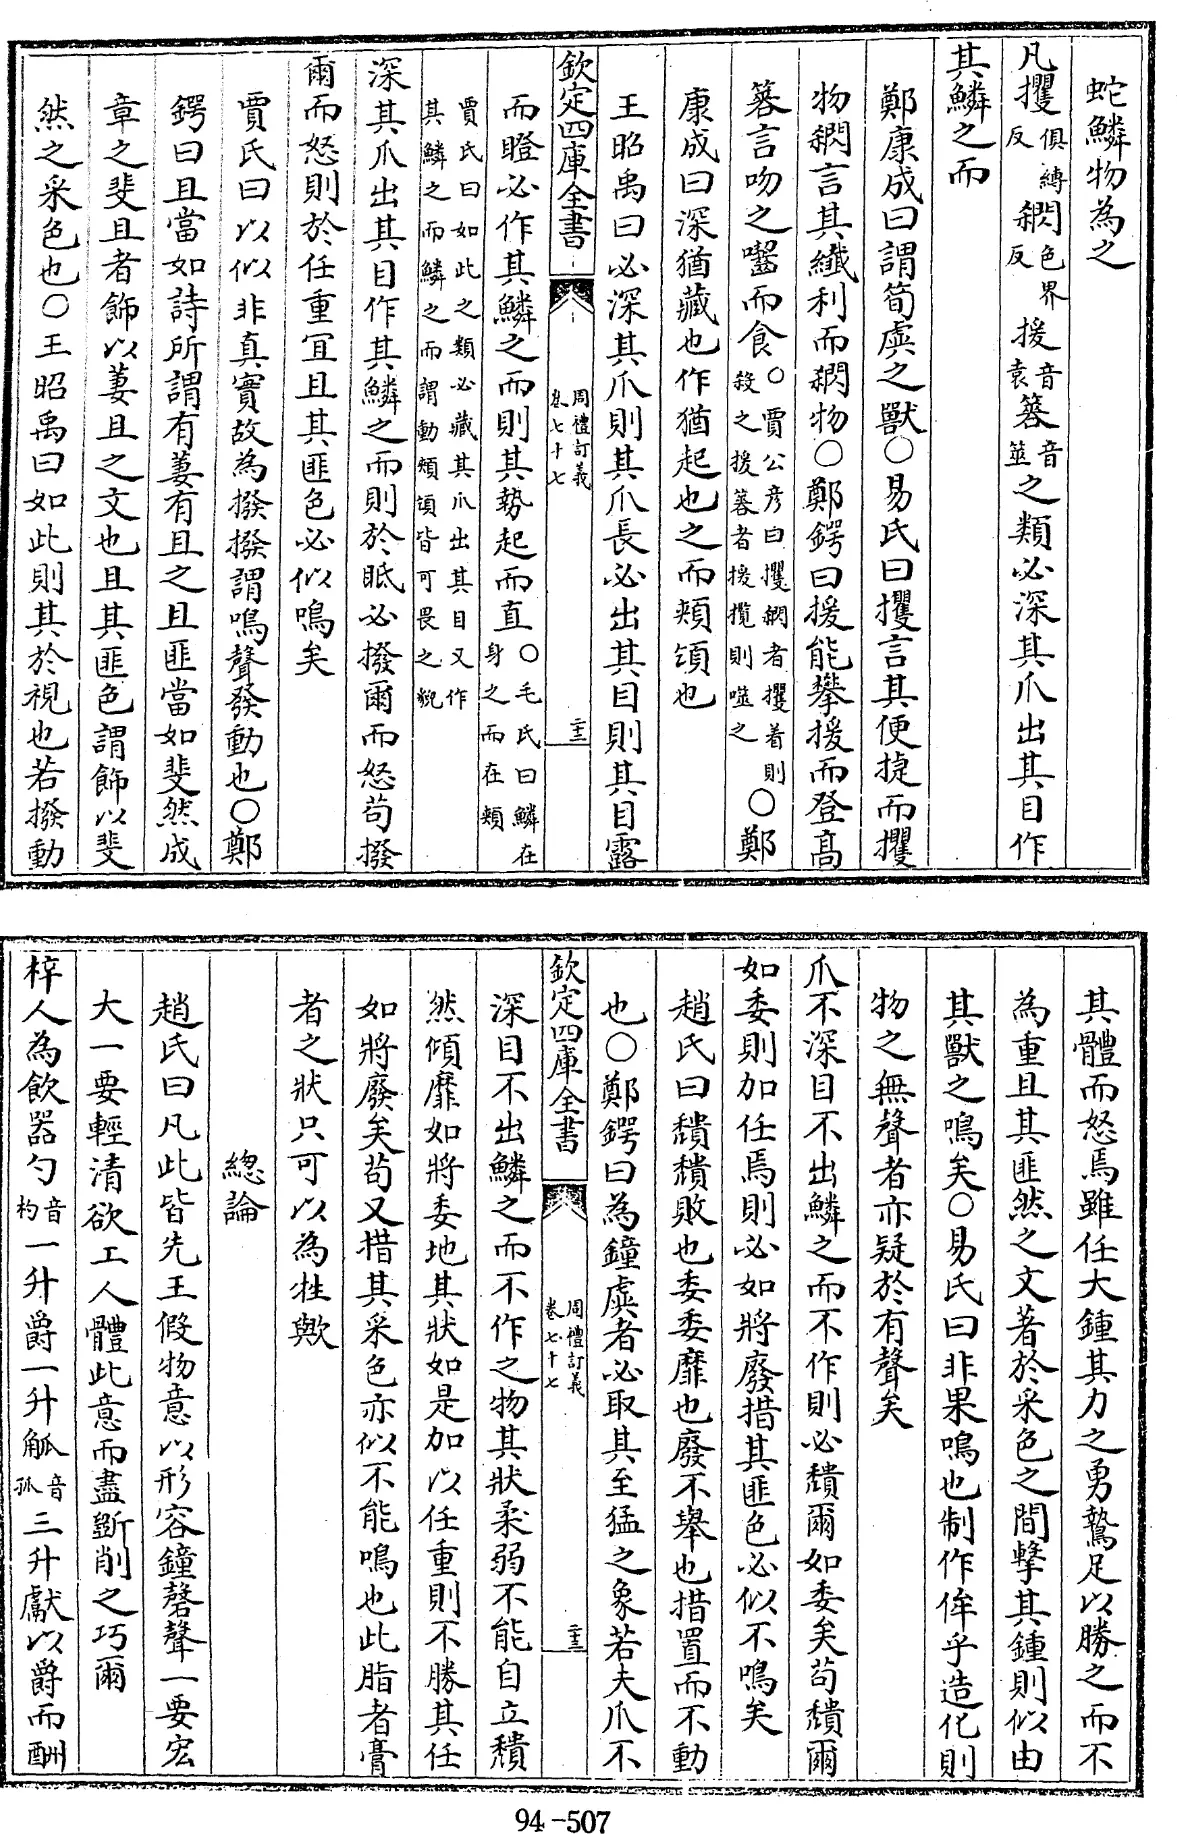 蛇鱗物為之
凡攫俱縛反閷色界反援音袁簭音筮之類必深其爪出其目作
其鱗之而
鄭康成曰謂筍虡之獸○易氏曰攫言其便捷而攫
物閷言其纖利而閷物○鄭鍔曰援能攀援而登高
簭言吻之噬而食○賈公彦曰攫閷者攫着則殺之援簭者援攬則噬之○鄭
康成曰深猶藏也作猶起也之而頰頷也
王昭禹曰必深其爪則其爪長必出其目則其目露
欽定四庫全書
周禮訂義
卷七十七
二十三
而瞪必作其鱗之而則其勢起而直○毛氏曰鱗在身之而在頰
賈氏曰如此之類必藏其爪出其目又作其鱗之而鱗之而謂動頰頷皆可畏之貌
深其爪出其目作其鱗之而則於眡必撥爾而怒茍撥
爾而怒則於任重宜且其匪色必似鳴矣
賈氏曰以似非真實故為撥撥謂鳴聲發動也○鄭
鍔曰且當如詩所謂有萋有且之且匪當如斐然成
章之斐且者飾以萋且之文也且其匪色謂飾以斐
然之采色也○王昭禹曰如此則其於視也若撥動
其體而怒焉雖任大鍾其力之勇鷙足以勝之而不
為重且其匪然之文著於采色之間擊其鍾則似由
其獸之鳴矣○易氏曰非果鳴也制作侔乎造化則
物之無聲者亦疑於有聲矣
爪不深目不出鱗之而不作則必穨爾如委矣茍穨爾
如委則加任焉則必如將廢措其匪色必似不鳴矣
趙氏曰穨穨敗也委委靡也廢不舉也措置而不動
也○鄭鍔曰為鐘虡者必取其至猛之象若夫爪不
欽定四庫全書
周禮訂義
卷七十七
二十三
深目不出鱗之而不作之物其狀柔弱不能自立穨
然傾靡如將委地其狀如是加以任重則不勝其任
如將廢矣茍又措其采色亦似不能鳴也此脂者膏
者之狀只可以為牲歟
總論
趙氏曰凡此皆先王假物意以形容鐘磬聲一要宏
大一要輕清欲工人體此意而盡斵削之巧爾
梓人為飲器勺音杓一升爵一升觚音孤三升獻以爵而酬
94-507